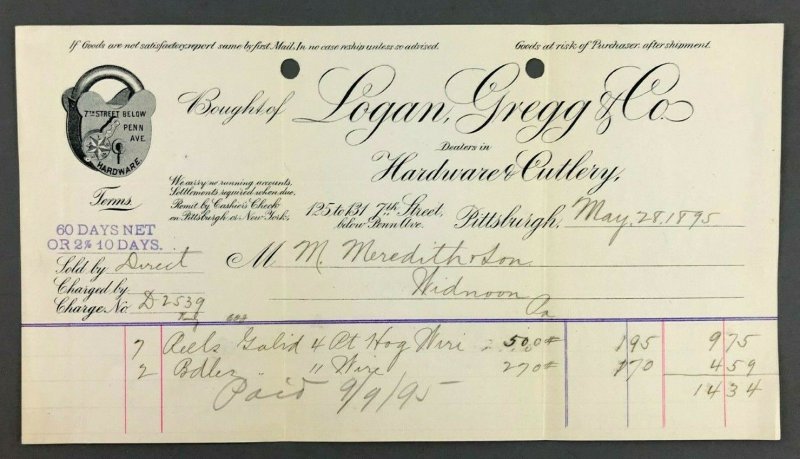 If Goods are not satisfactory, report same by first Mail. In no case reship unless so advised.
Goods at risk of Purchaser, after shipment.
7TH STREET BELOW
PENN
AVE.
HARDWARE.
Bought of Logan, Gregg & Co.
Dealers in
Hardware & Cutlery,
Terms
We carry no running accounts.
Settlements required when due.
Remit by Cashier's Check
on Pittsburgh or New York.
125 to 131 7th Street,
below Penn Ave.
Pittsburgh, May 28, 1895
60 DAYS NET
OR 2% 10 DAYS.
Sold by Direct
M M. Meredith & Son
Charged by
Widnoon
Charge No. D2539
Pa
7 Reels Galvd 4 Pt Hog Wire 500# 195 975
2 Bdles " " Wire 270# 170 459
1434
Paid 9/9/95